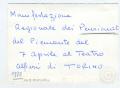 Manifestazione
Regionale dei Pensionati
del Piemonte del
7 Aprile al Teatro
Alfieri di TORINO